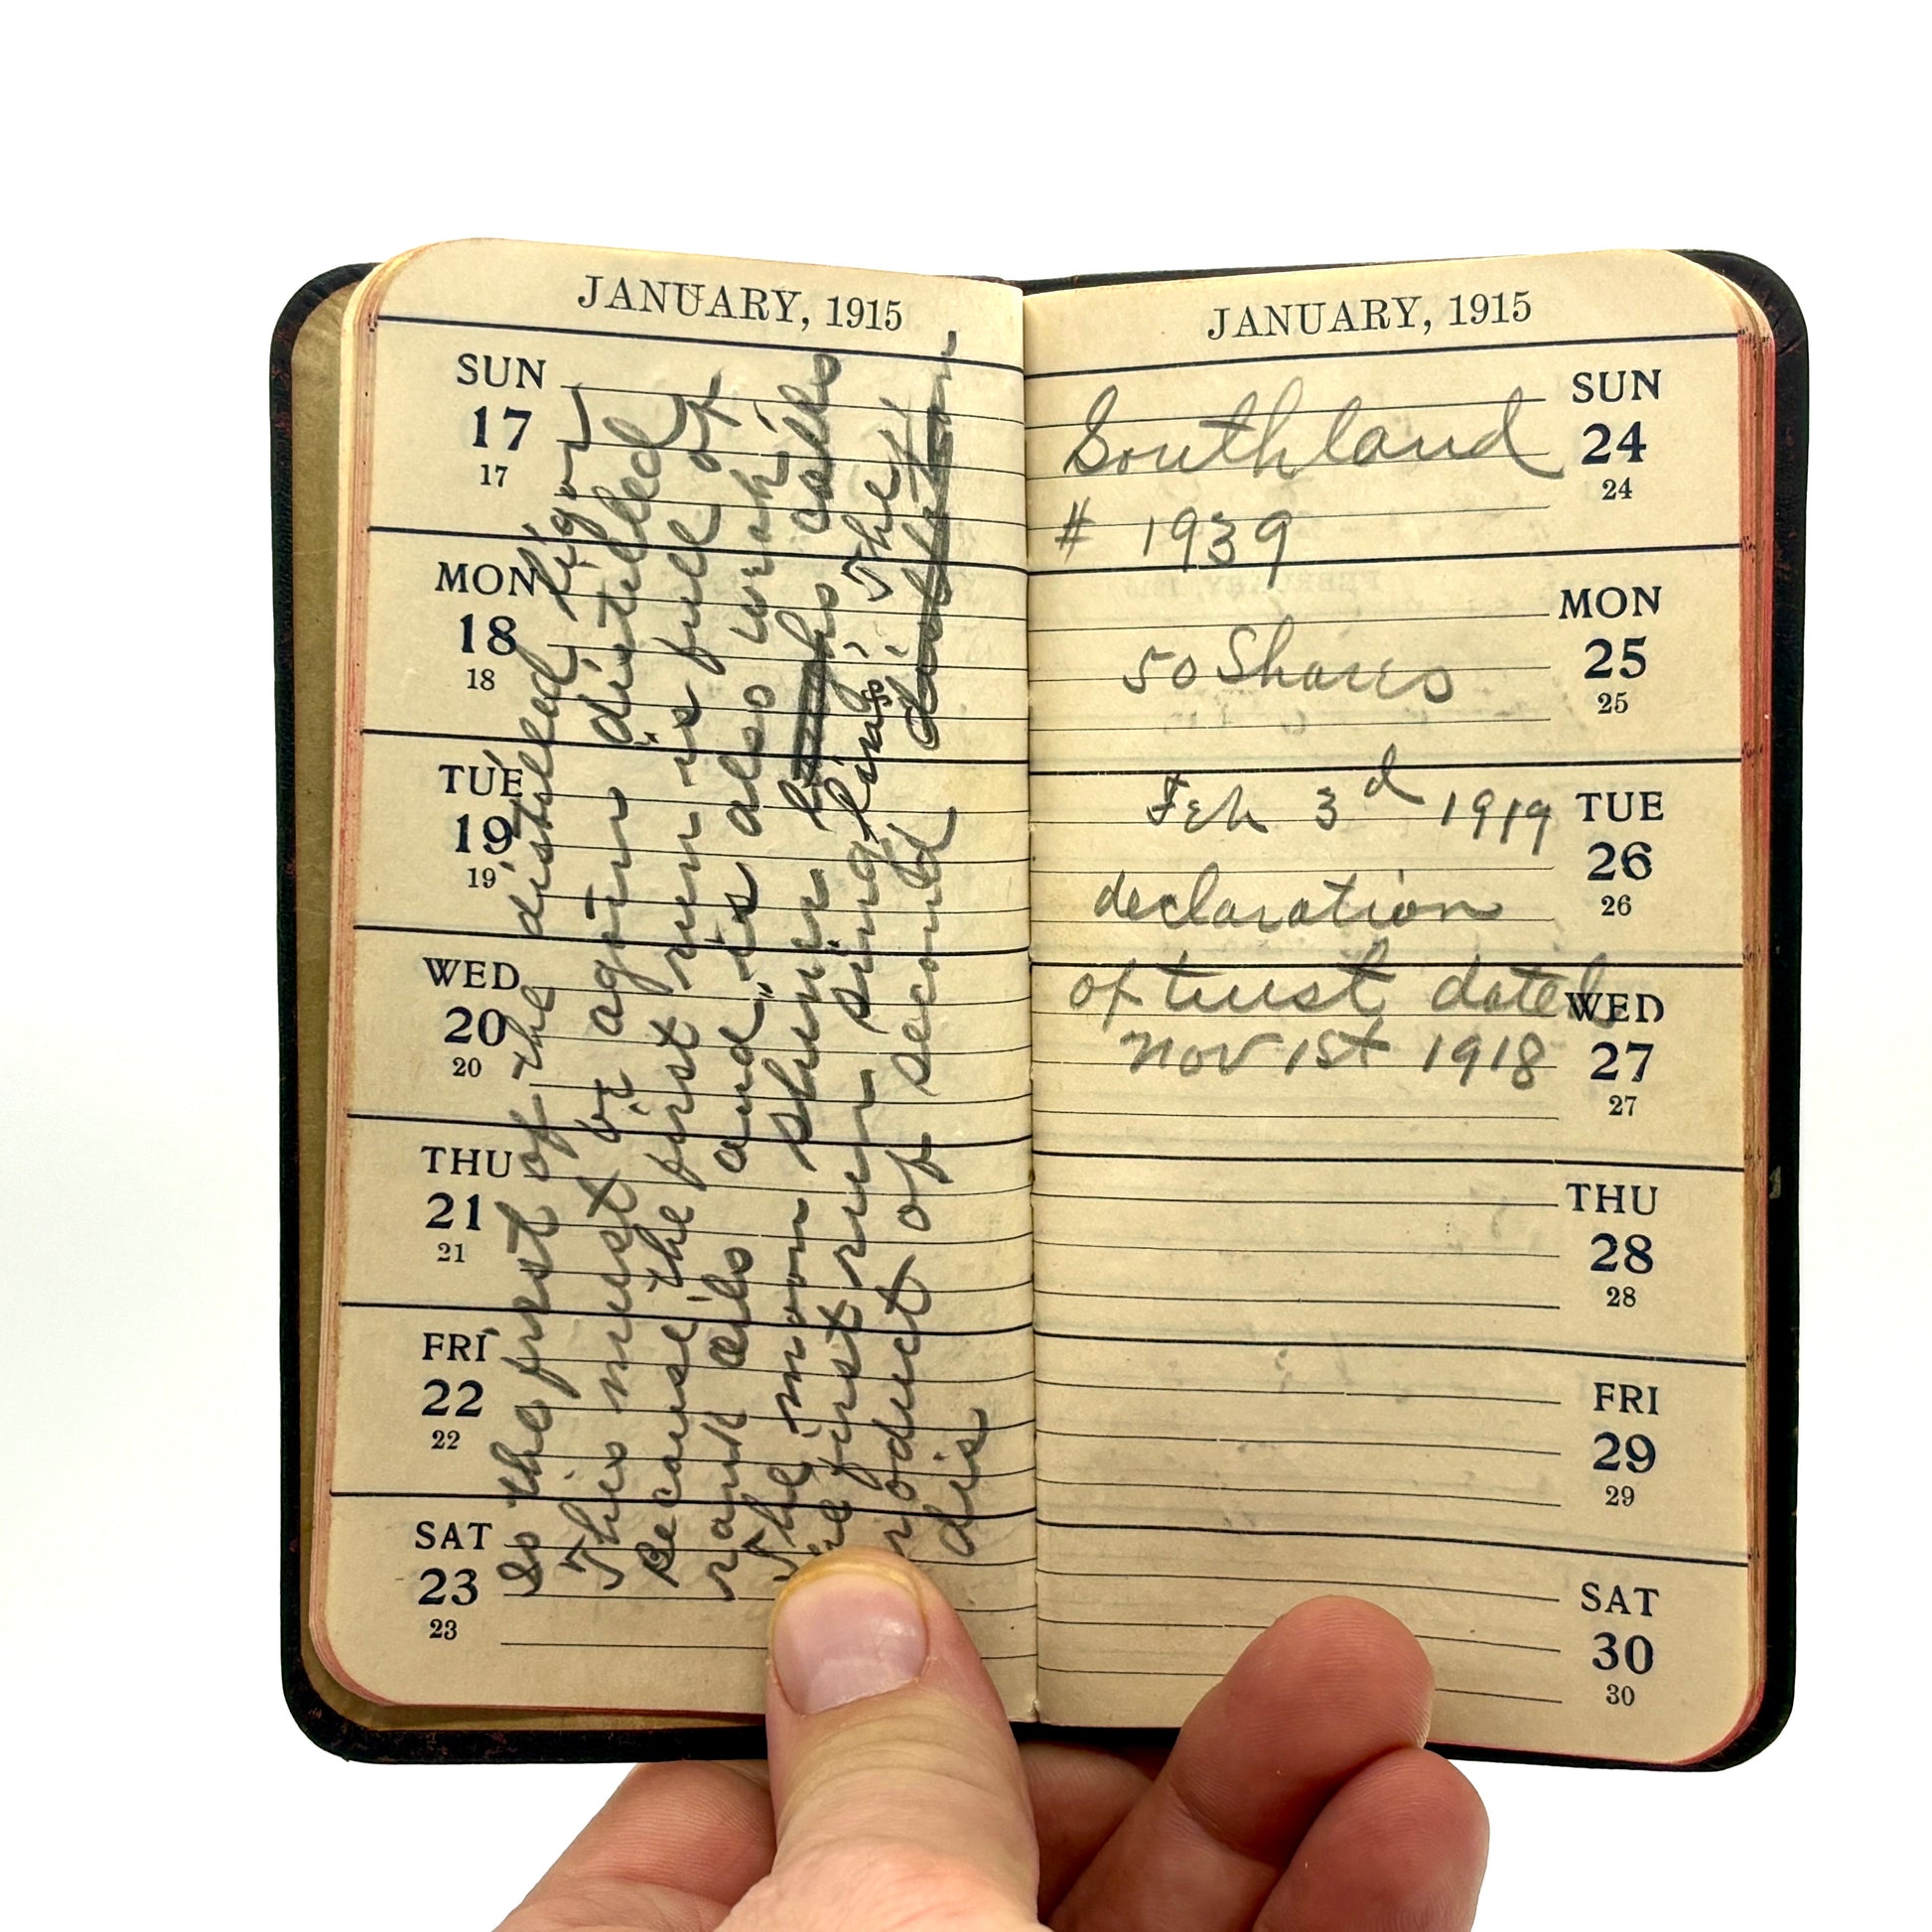 JANUARY, 1915
SUN
17
17
MON
18
18
TUE
19
19
WED
20
20
THU
21
21
FRI
22
22
SAT
23
23
is the first of the distilled liqor
This must be agin distilled
Because the first run is full of
rank oils and is also weak
The moon shiner calls
he first run singling's The
roduct of second
dis
JANUARY, 1915
SUN
24
24
MON
25
25
TUE
26
26
WED
27
27
THU
28
28
FRI
29
29
SAT
30
30
Southland
# 1939
50 Shares
Feb 3d 1919
declaration
of trust dated
Nov 1st 1918